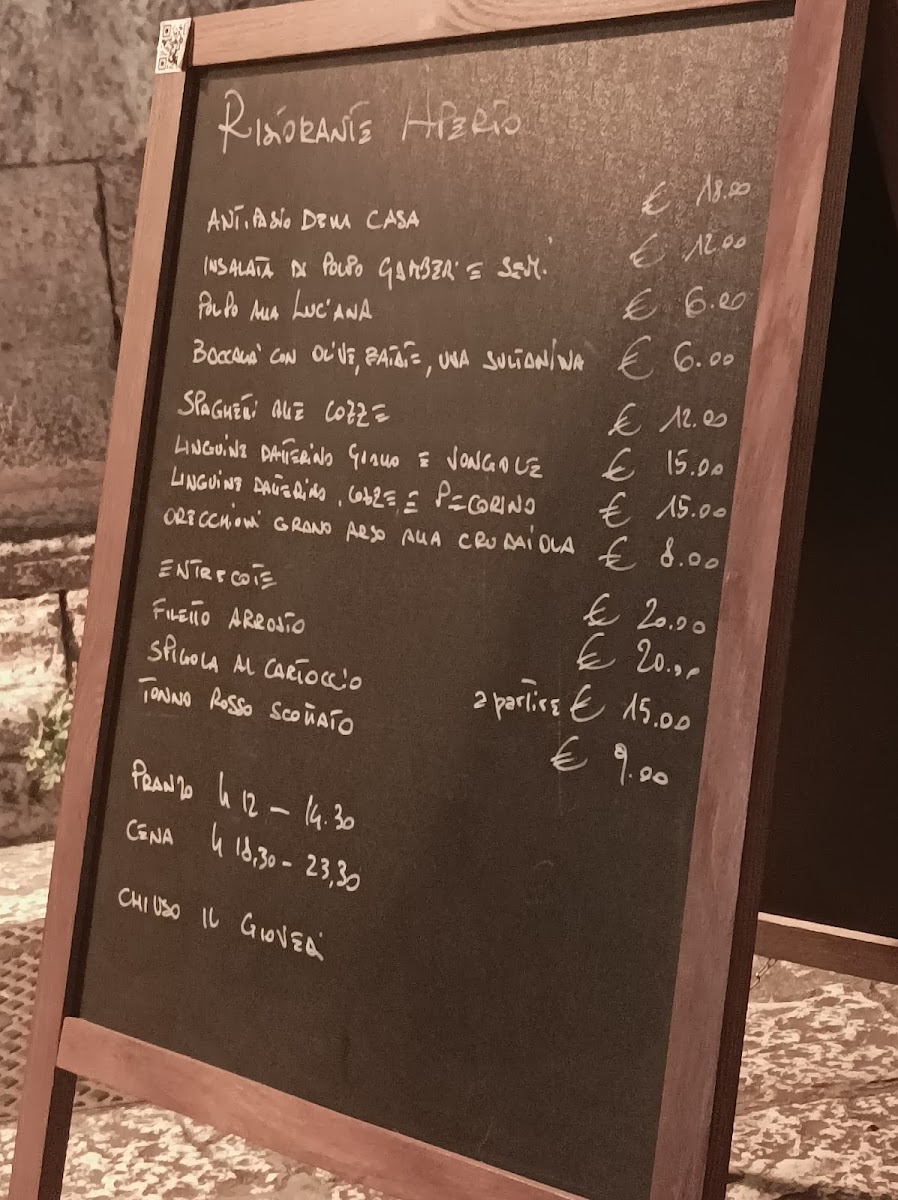 RISTORANTE APERTO
ANTIPASTO DELLA CASA € 18.00
INSALATA DI POLPO GAMBERI E SEMI € 12.00
POLPO ALLA LUCIANA € 6.00
BACCALÀ CON OLIVE, PATATE, UVA SULTANINA € 6.00
SPAGHETTI ALLE COZZE € 12.00
LINGUINE DATTERINO GIALLO E VONGOLE € 15.00
LINGUINE DATTERINO, COZZE, E PECORINO € 15.00
ORECCHIONI GRANO ARSO ALLA CRUDAIOLA € 8.00
ENTRECOTE € 20.00
FILETTO ARROSTO € 20.00
SPIGOLA AL CARTOCCIO a partire € 15.00
TONNO ROSSO SCOTTATO € 9.00
PRANZO h 12 – 14.30
CENA h 18,30 – 23,30
CHIUSO IL GIOVEDÌ